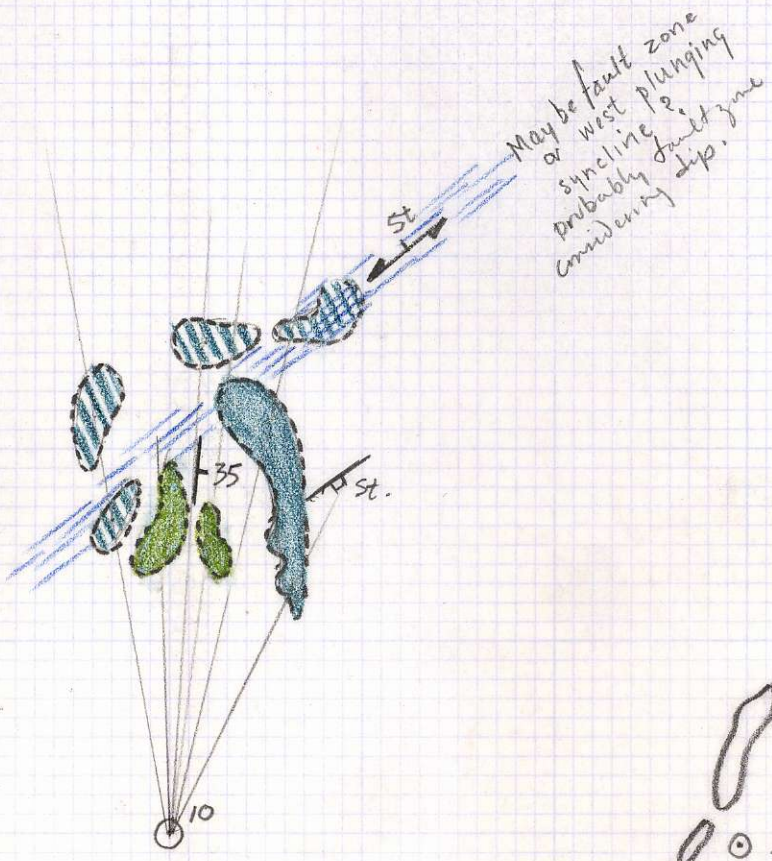 May be fault zone
or west plunging
syncline ?
probably fault zone
considering dip.
St
35
St.
10